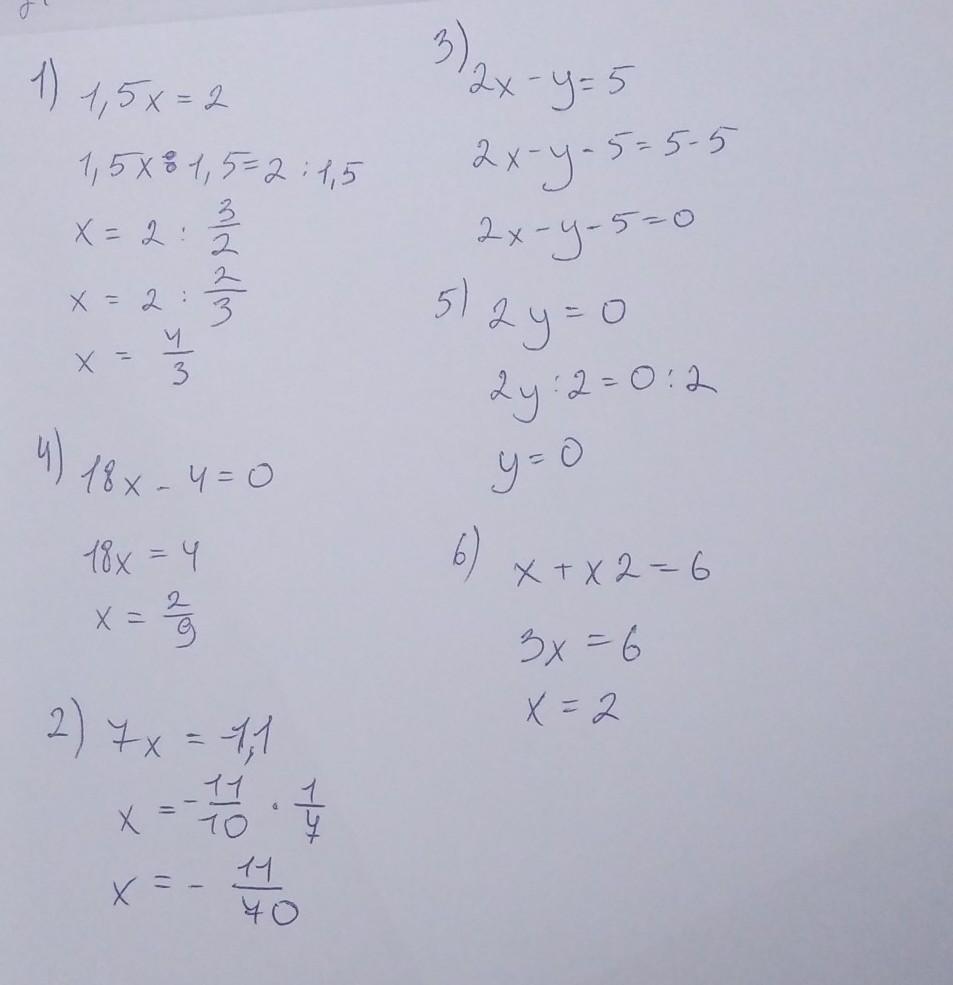 1) 1,5x = 2
1,5x : 1,5 = 2 : 1,5
x = 2 : 3/2
x = 2 : 2/3
x = 4/3
4) 18x - 4 = 0
18x = 4
x = 2/9
2) 7x = -1,1
x = - 11/10 · 1/7
x = - 11/70
3) 2x - y = 5
2x - y - 5 = 5 - 5
2x - y - 5 = 0
5) 2y = 0
2y : 2 = 0 : 2
y = 0
6) x + x2 = 6
3x = 6
x = 2